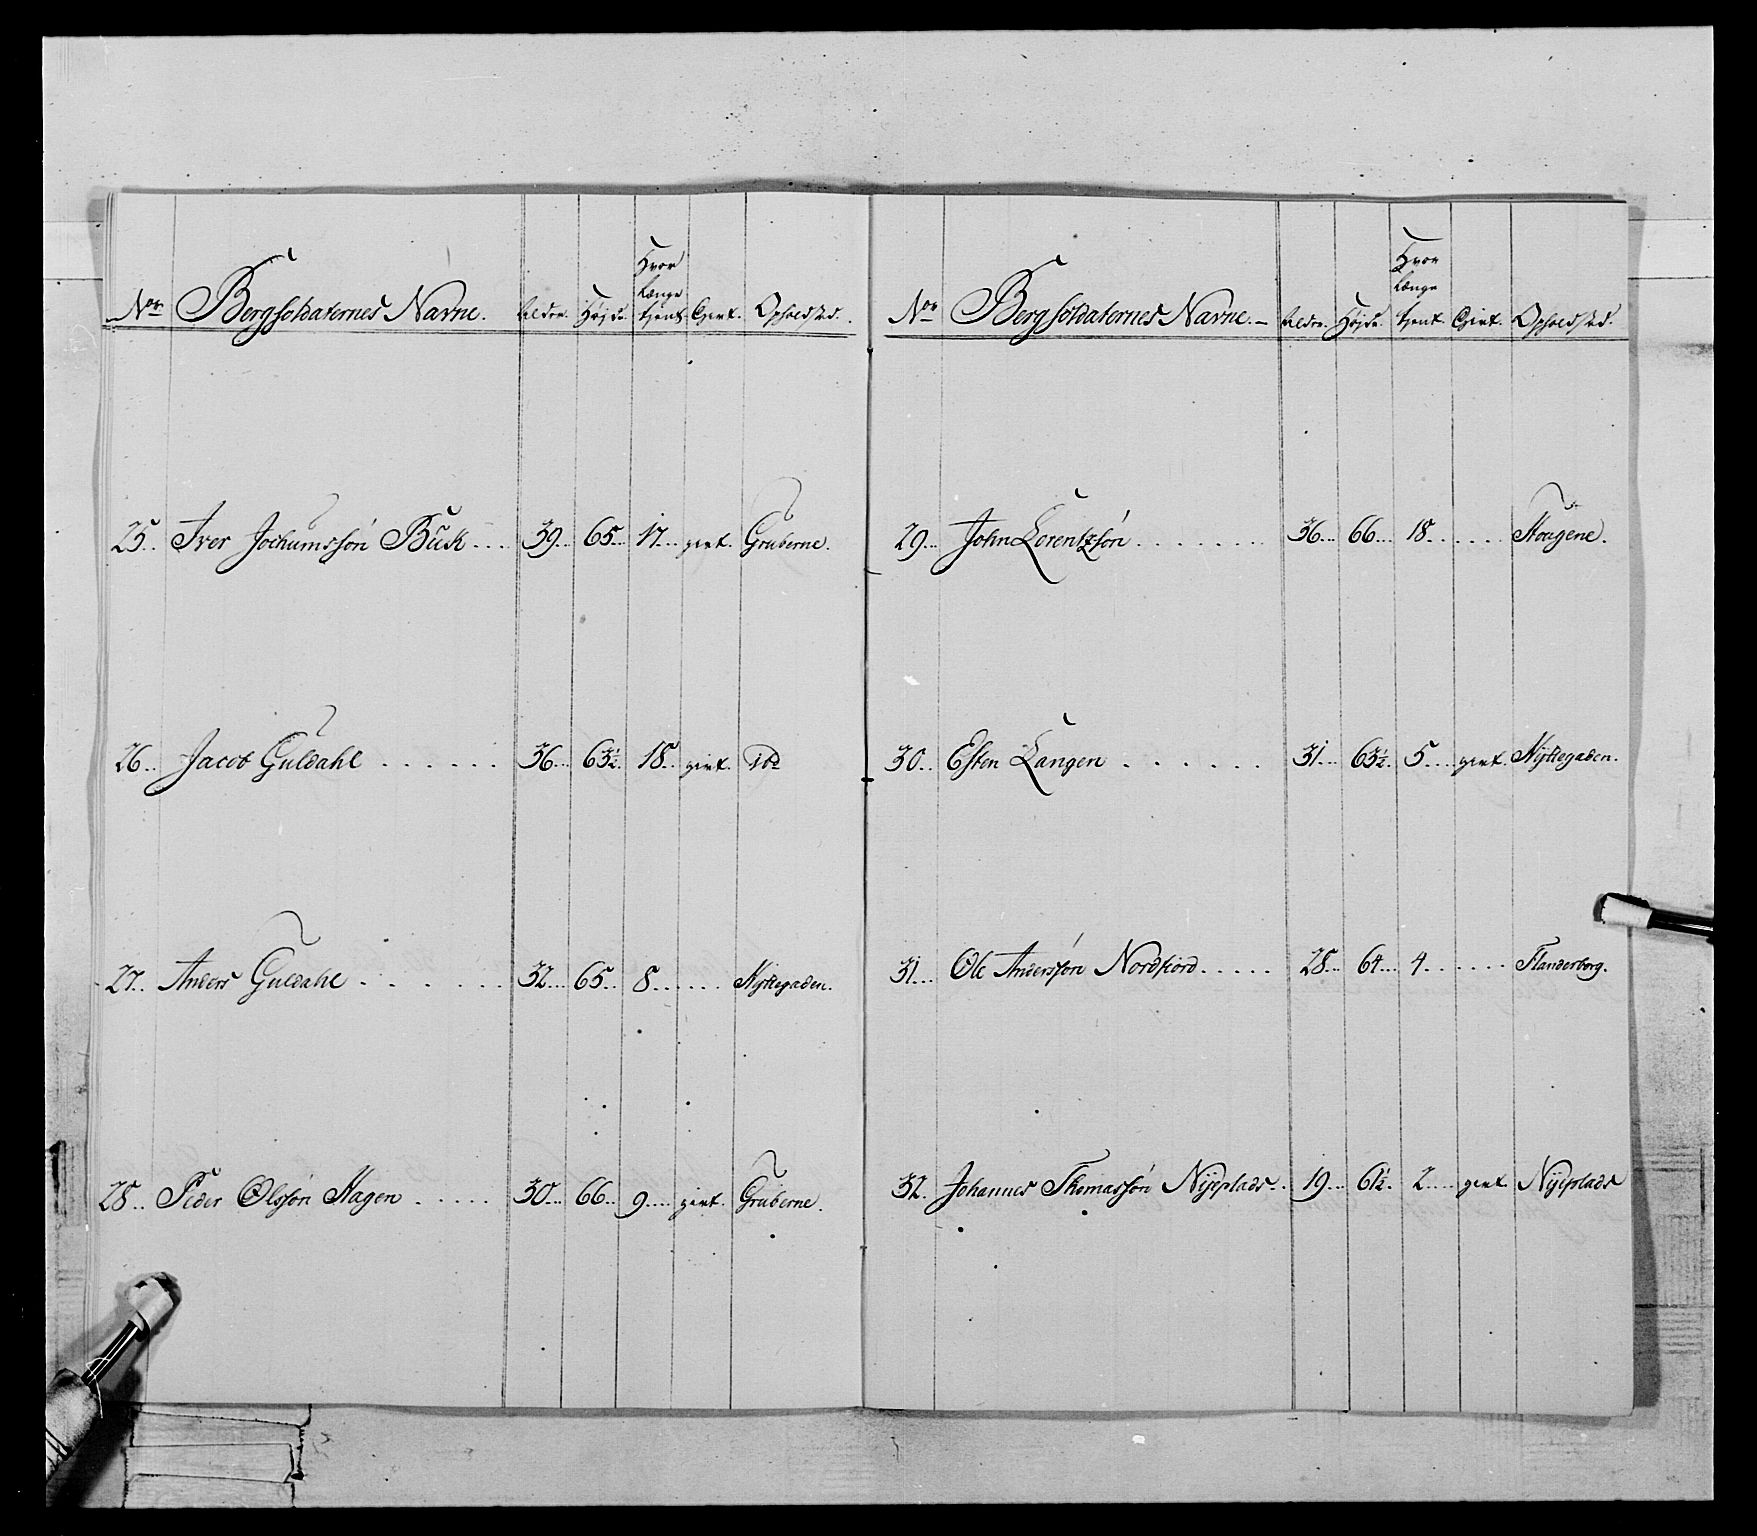 Nor. Bergsoldaternes Navne. Alder. Højde. Hvor længe tjent. Givt. Opholdsted.
25. Iver Jochumssön Buck 39 65 17 givt. Gruberne.
26. Jacob Guldahl 36 63½ 18 givt. ido
27. Anders Guldahl 32 65 8 Hyttegaden.
28. Peder Olssön Hagen 30 66 9 givt. Gruberne.
Nor. Bergsoldaternes Navne. Alder. Højde. Hvor længe tjent. Givt. Opholdsted.
29. John Lorentzsön 36 66 18 Hougene.
30. Esten Langen 31 63½ 5 givt. Hyttegaden.
31. Ole Anderssön Nordfiord 28 64 4 Flanderborg.
32. Johannes Thomassön Nyeplads 19 61½ 2 givt. Nyeplads